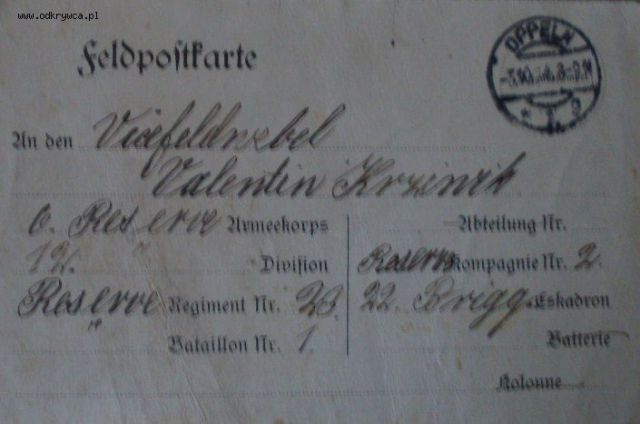 www.odkrywca.pl
Feldpostkarte
OPPELN
An den Vicefeldwebel
Valentin
6. Reserve Armeekorps
12. " Division
Reserve Regiment Nr. 23
Bataillon Nr. 1
Abteilung Nr.
Reserve Kompagnie Nr. 2
22. Brigg. Eskadron
Batterie
Kolonne